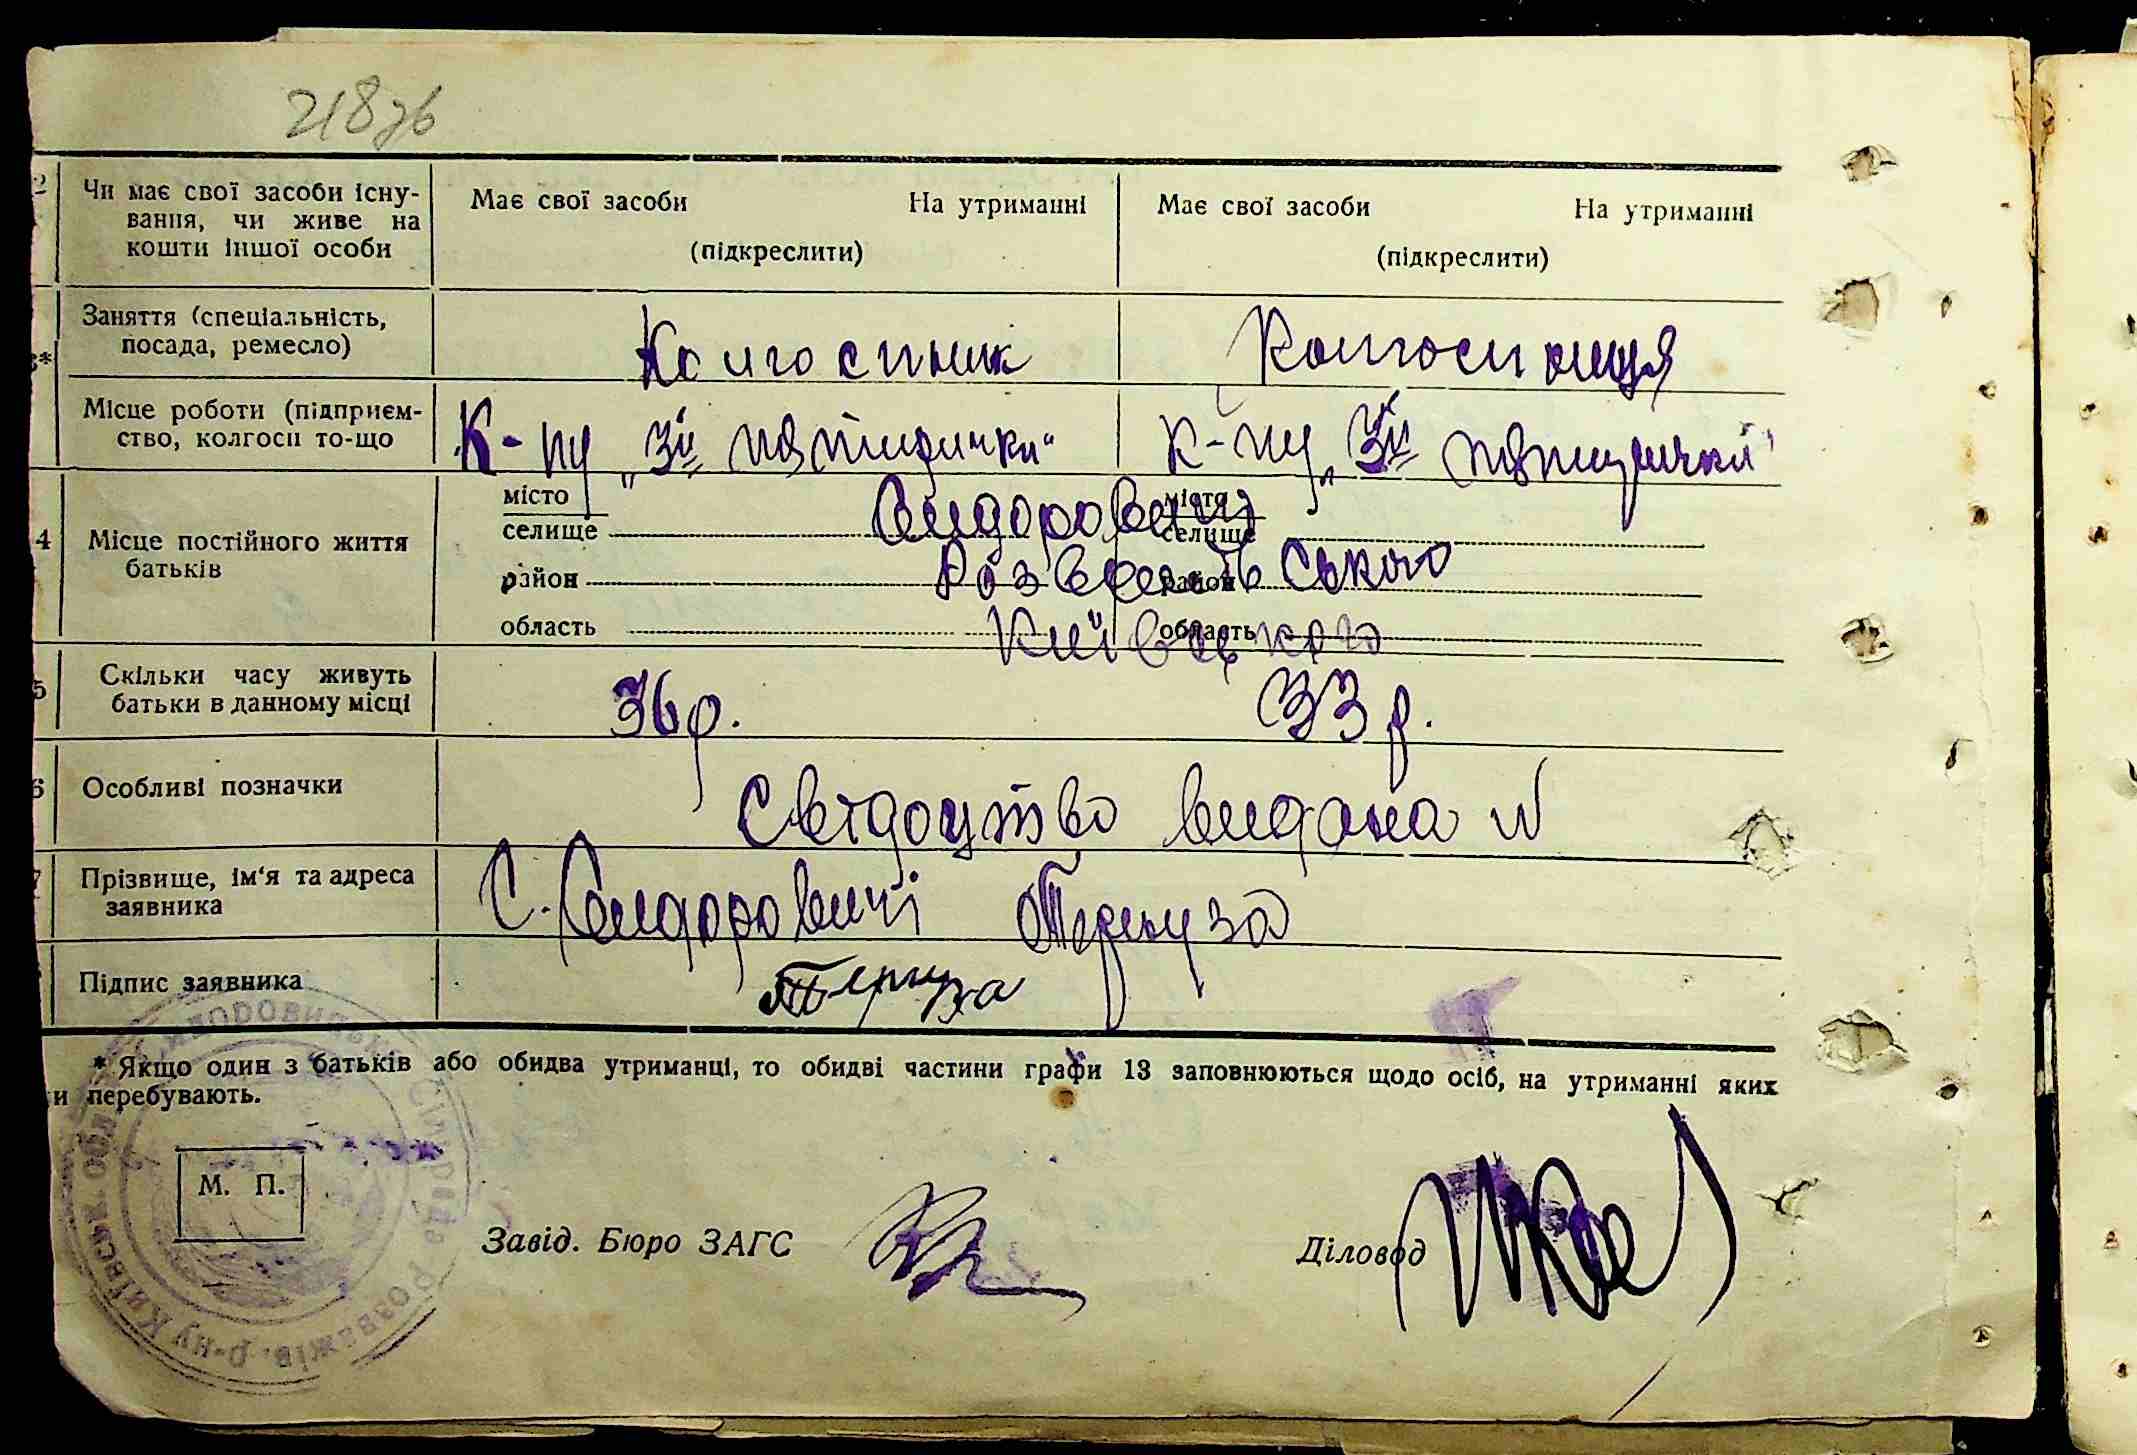 218 зв
2 Чи має свої засоби існу-
вання, чи живе на
кошти іншої особи
Має свої засоби На утриманні
(підкреслити)
Має свої засоби На утриманні
(підкреслити)
3* Заняття (спеціальність,
посада, ремесло)
Колгоспник
Колгоспниця
Місце роботи (підприєм-
ство, колгосп то-що
К-пу „3й пятидички"
К-пу „3й пятидички"
4 Місце постійного життя
батьків
місто
селище
район
область
місто
селище
район
область
Сидоровичі
Розважівського
Київського
5 Скільки часу живуть
батьки в данному місці
36 р.
33 р.
6 Особливі позначки
Свідоцтво видана №
7 Прізвище, ім'я та адреса
заявника
С. Сидоровичі Тергуза
Підпис заявника
Тергуза
* Якщо один з батьків або обидва утриманці, то обидві частини графи 13 заповнюються щодо осіб, на утриманні яких
и перебувають.
М. П.
Завід. Бюро ЗАГС
Діловод
Сільрада Розважів. р-ну Київськ. обл.